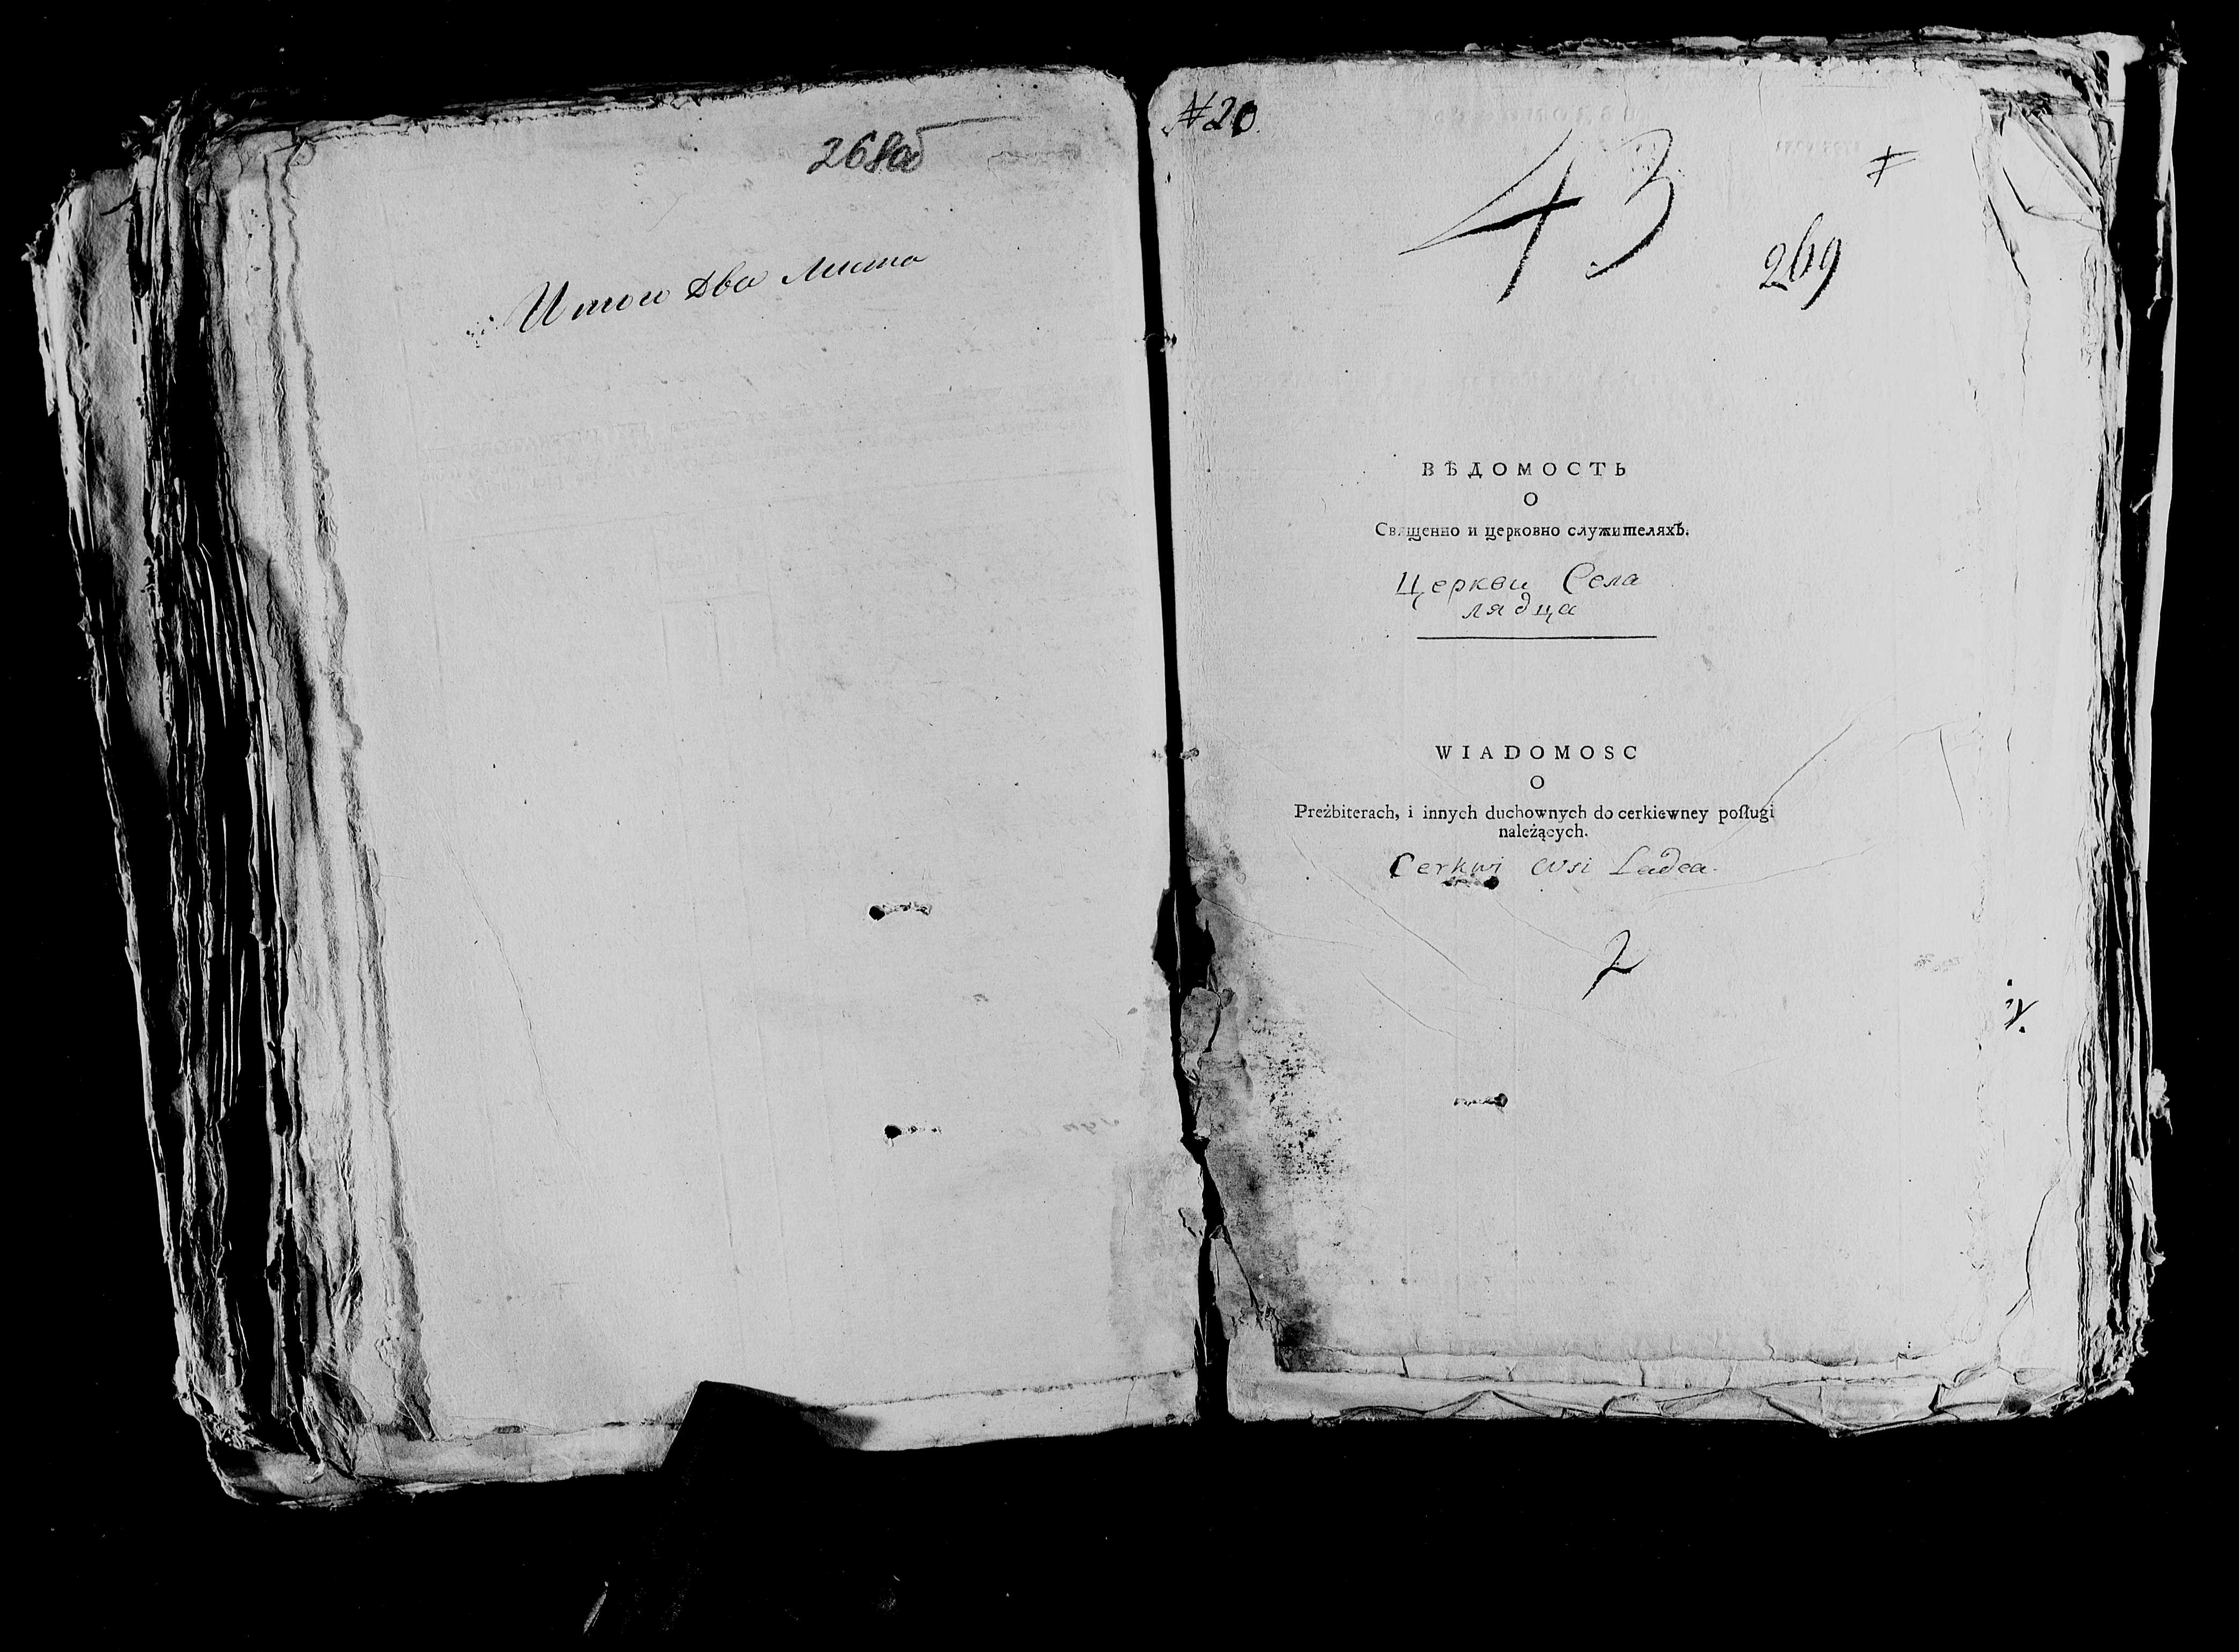 268об
Итого два листа
№20.
43
269
ВѢДОМОСТЬ
О
Священно и церковно служителяхъ.
Церкви Села
лядца
WIADOMOSC
O
Preżbiterach, i innych duchownych do cerkiewney poſługi
należących.
Cerkwi wsi Ladca.
2